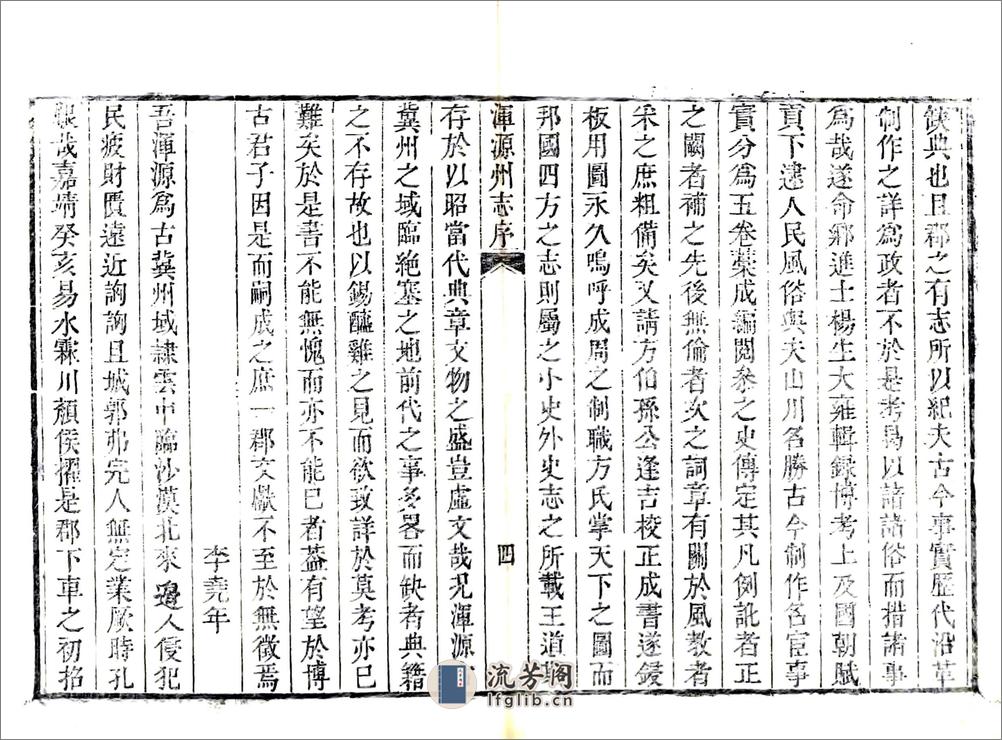 缺典也且郡之有志所以紀夫古今事實歷代沿革
制作之詳爲政者不於是考曷以諸諸俗而措諸事
爲哉遂命鄉進士楊生大雍輯録博考上及國朝賦
貢下逮人民風俗與夫山川名勝古今制作名宦事
實分爲五卷藁成編閱叅之史傳定其凡例訛者正
之闕者補之先後無倫者次之詞章有關於風教者
采之庶粗備矣又請方伯孫公逢吉校正成書遂鋟
板用圖永久嗚呼成周之制職方氏掌天下之圖而
邦國四方之志則屬之小史外史志之所載王道
渾源州志序
四
存於以昭當代典章文物之盛豈虛文哉况渾源
冀州之域臨絶塞之地前代之事多畧而缺者典籍
之不存故也以錫醯雞之見而欲致詳於莫考亦已
難矣於是書不能無愧而亦不能已者葢有望於博
古君子因是而嗣成之庶一郡文獻不至於無徵焉
李堯年
吾渾源爲古冀州域隷雲中臨沙漠北來邊人侵犯
民疲財匱遠近詢詢且城郭弗完人無定業厥時孔
艱哉嘉靖癸亥易水霖川顏侯擢是郡下車之初招
流芳閣
lfglib.cn